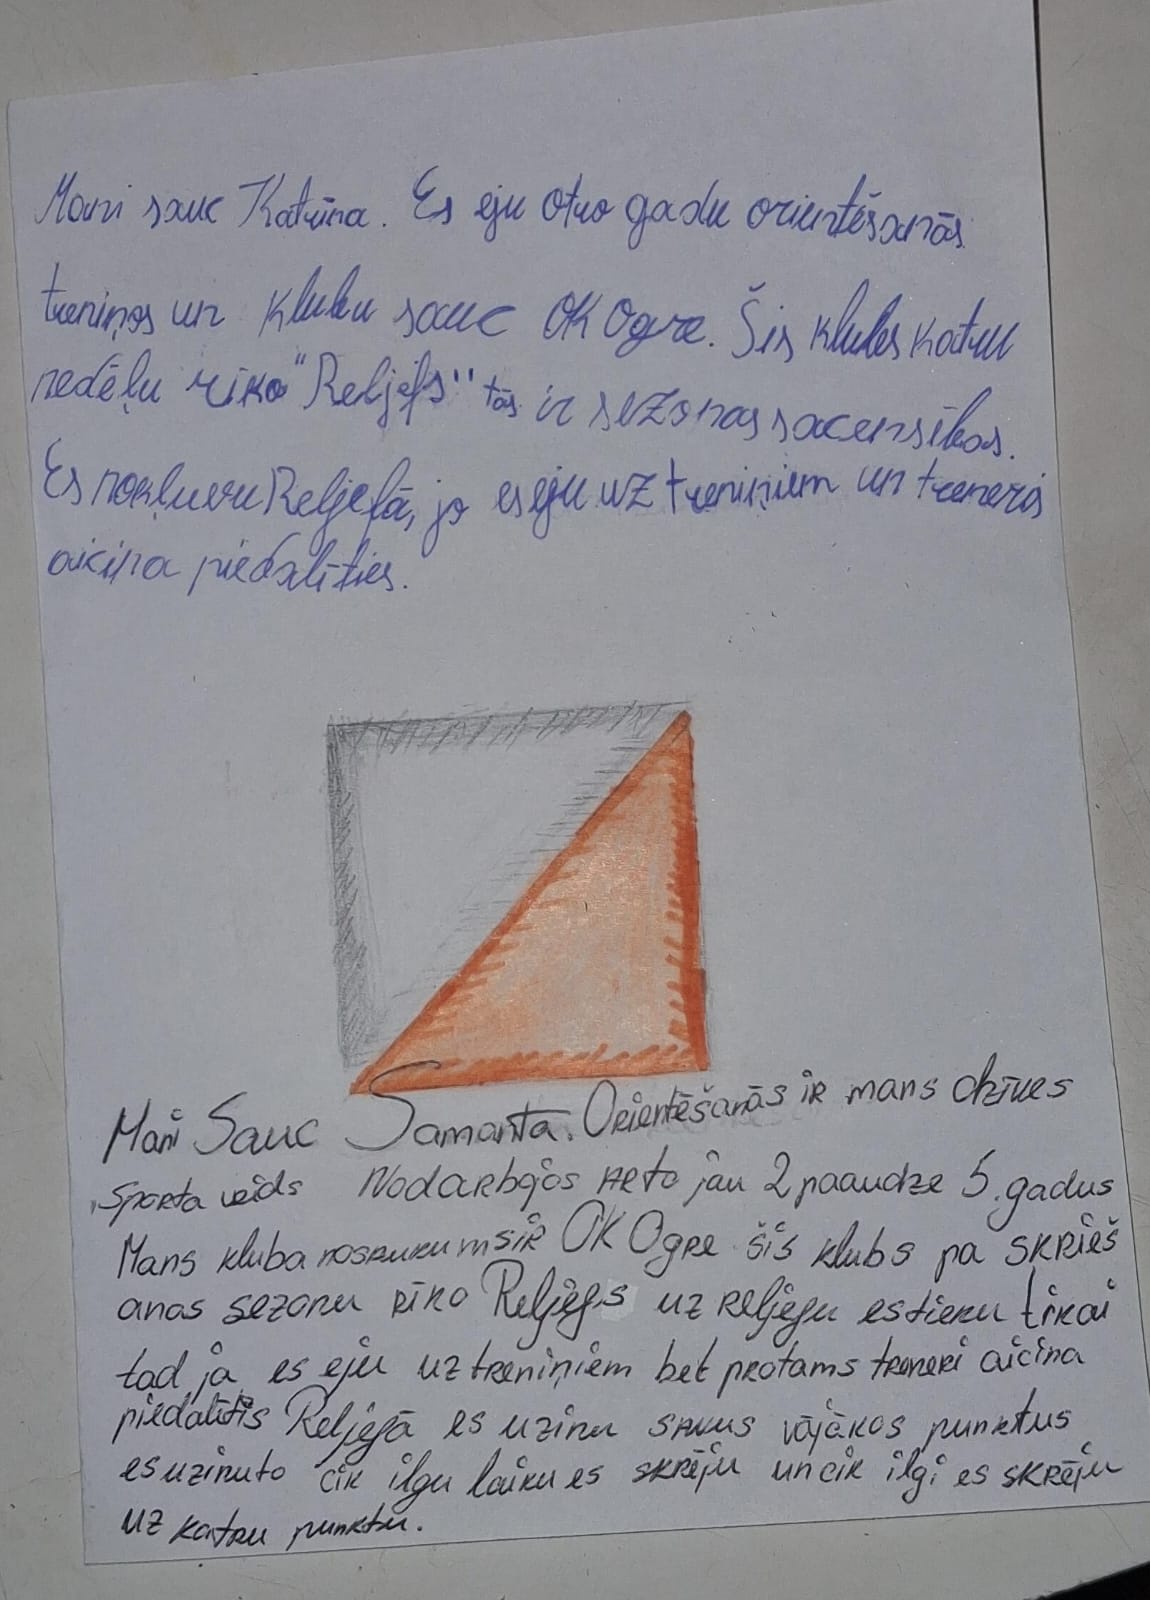 Mani sauc Katrīna. Es eju otro gadu orientēšanās
treniņos un klubu sauc OK Ogre. Šis klubs katru
nedēļu rīko "Reljefs" tās ir sezonas sacensības.
Es nokļuvu Reljefā, jo es eju uz treniņiem un treneris
aicina piedalīties.
Mani Sauc Samanta. Orientēšanās ir mans dzīves
sporta veids Nodarbojos ar to jau 2 paaudze 5. gadus
Mans kluba nosaukums ir OK Ogre šis klubs pa skrieš
anas sezonu rīko Reljefs uz reljefu es tieku tikai
tad ja es eju uz treniņiem bet protams treneri aicina
piedalītis Reljefā es uzinu savus vājākos punktus
es uzinu to cik ilgu laiku es skrēju un cik ilgi es skrēju
uz katru punktu.